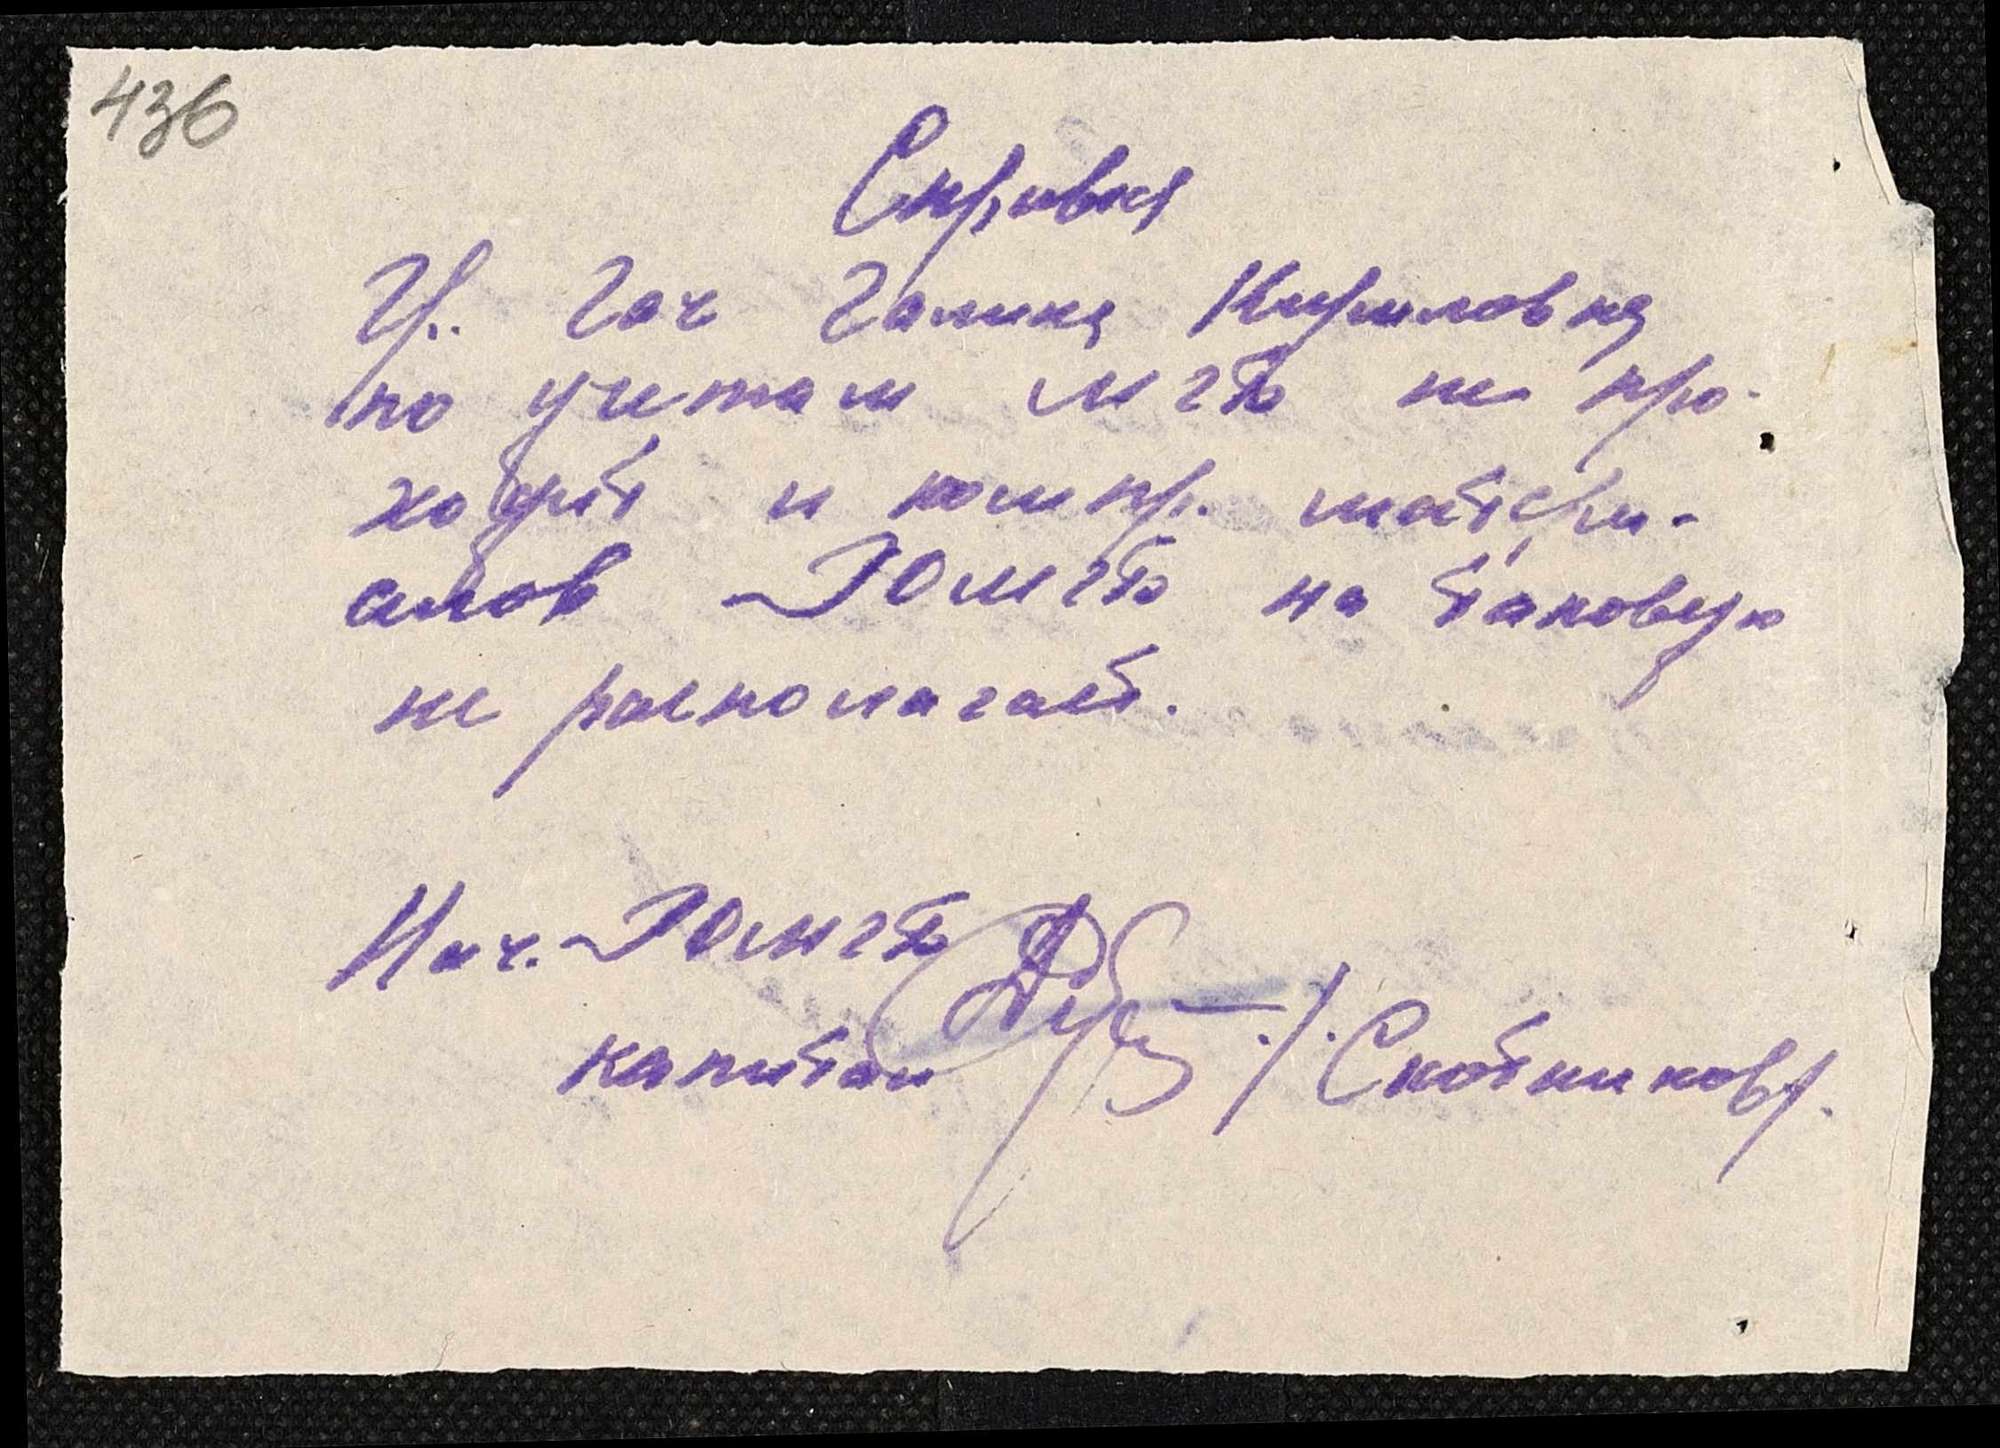 436
Справка
Гр. Гач Галина Кириловна
по учетам МГБ не про-
ходит и компр. матери-
алов РОМГБ на таковую
не располагает.
Нач. РОМГБ
капитан /Скотников/.